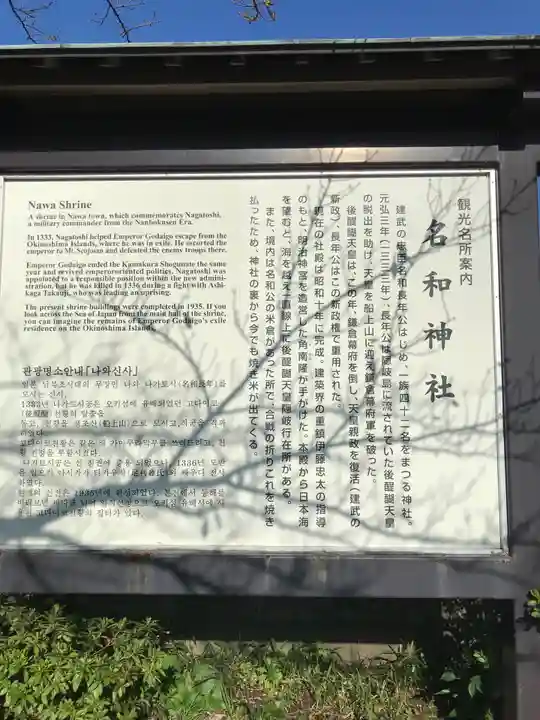 観光名所案内
名和神社
建武の忠臣名和長年公はじめ、一族四十二名をまつる神社。
元弘三年(一三三三年)、長年公は隠岐島に流されていた後醍醐天皇
の脱出を助け、天皇を船上山に迎え鎌倉幕府軍を破った。
後醍醐天皇は、この年、鎌倉幕府を倒し、天皇親政を復活(建武の
新政)、長年公はこの新政権で重用された。
現在の社殿は昭和十年に完成。建築界の重鎮伊藤忠太の指導
のもと、明治神宮を造営した角南隆が手がけた。本殿から日本海
を望むと、海を越え一直線上に後醍醐天皇隠岐行在所がある。
また、境内は名和公の米倉があった所で、合戦の折りこれを焼き
払ったため、神社の裏から今でも焼き米が出てくる。
Nawa Shrine
A shrine in Nawa town, which commemorates Nagatoshi,
a military commander from the Nanbokusen Era.
In 1333, Nagatoshi helped Emperor Godaigo escape from the
Okinoshima Islands, where he was in exile. He escorted the
emperor to Mt. Senjosan and defeated the enemy troops there.
Emperor Godaigo ended the Kamakura Shogunate the same
year and revived emperororiented politics. Nagatoshi was
appointed to a responsible position within the new admini-
stration, but he was killed in 1336 during a fight with Ashi-
kaga Takauji, who was leading an uprising.
The present shrine buildings were completed in 1935. If you
look across the Sea of Japan from the main hall of the shrine,
you can imagine the remains of Emperor Godaigo's exile
residence on the Okinoshima Island.
관광명소안내「나와신사」
일본 남북조시대의 무장인 나와 나가토시(名和長年)를
모시는 신사.